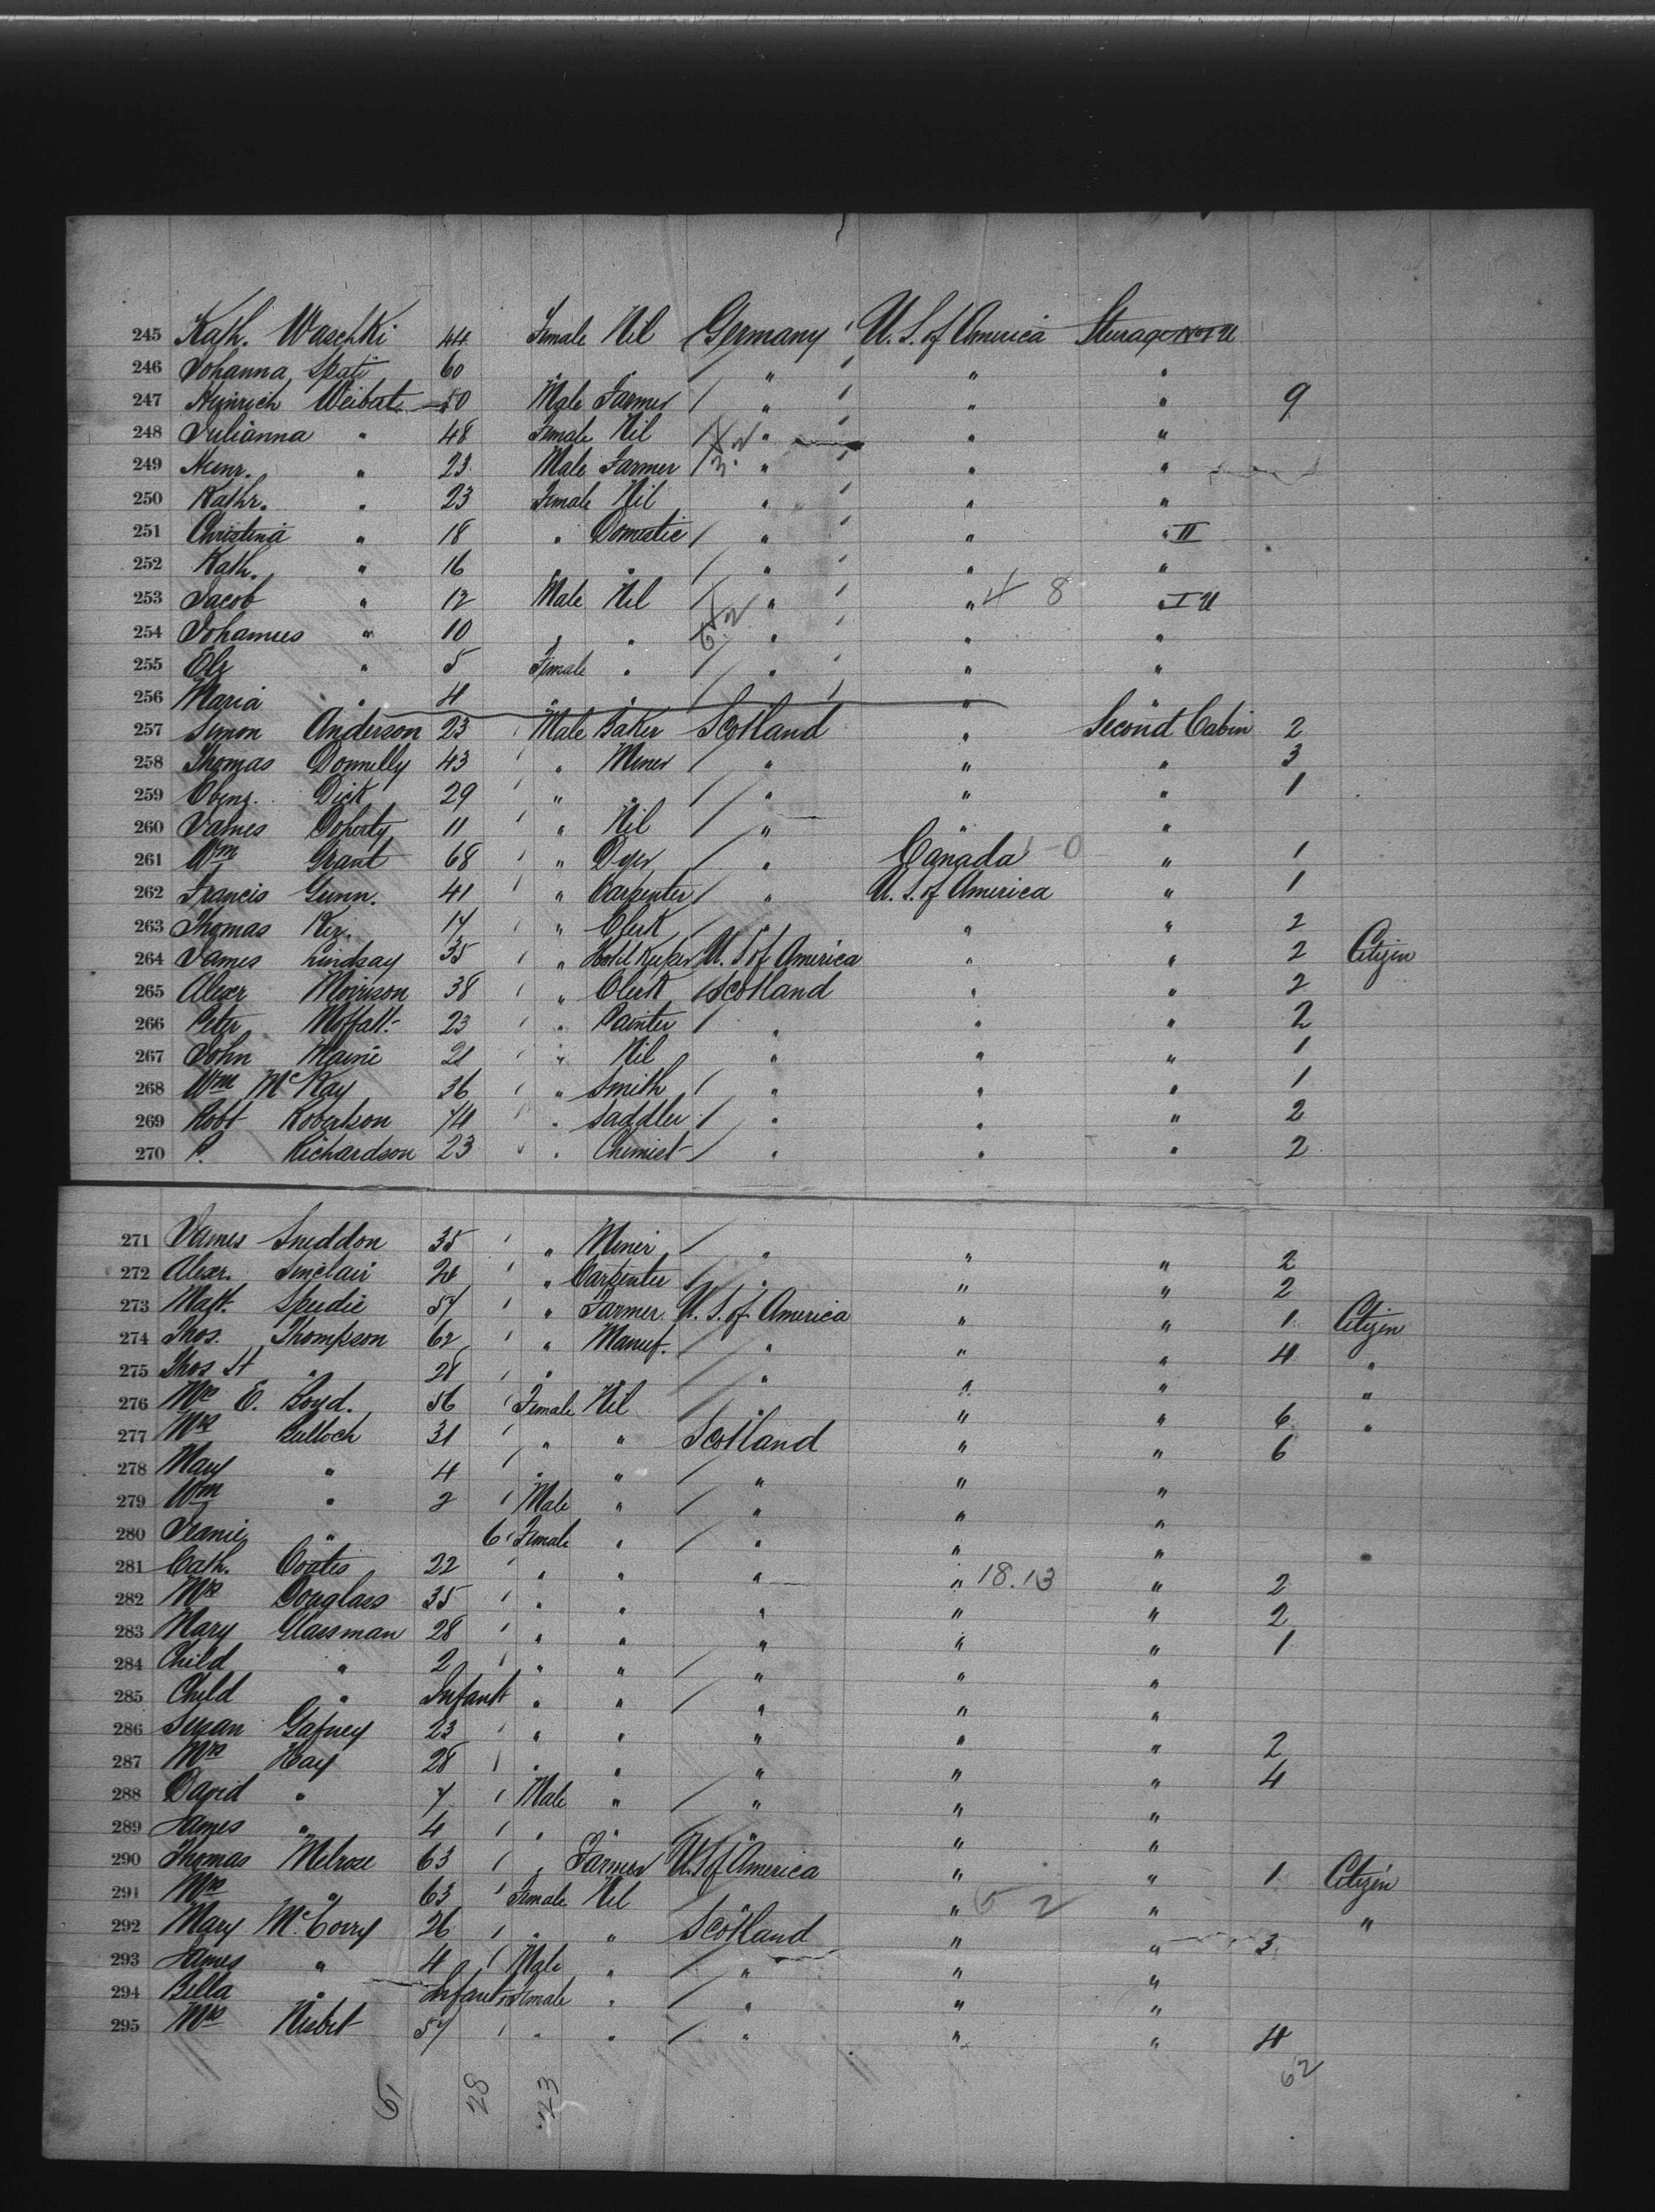 245 Kath. Waschki 44 Female Nil Germany U. S. of America Steerage No I U
246 Johanna Spati 60 " " " " "
247 Heinrich Weibat 50 Male Farmer " " " 9
248 Julianna " 48 Female Nil " " "
249 Heinr. " 23 Male Farmer " " "
250 Kathr. " 23 Female Nil " " "
251 Christina " 18 " Domestic " " " II
252 Kath. " 16 " " " " "
253 Jacob " 12 Male Nil " " 4 8 " I U
254 Johannes " 10 " " " " "
255 Elz " 5 Female " " " "
256 Maria " 4 " " " " "
257 Simon Anderson 23 Male Baker Scotland " Second Cabin 2
258 Thomas Donnelly 43 " Miner " " " 3
259 Ebenz. Dick 29 " " " " " 1
260 James Doherty 11 " Nil " " "
261 Wm Grant 68 " Dyer " Canada 1-0 " 1
262 Francis Gunn. 41 " Carpenter " U. S. of America " 1
263 Thomas Ker. 17 " Clerk " " " 2
264 James Lindsay 35 " Hotel Keeper U. S of America " " 2 Citizen
265 Alexr Morrison 38 " Clerk Scotland " " 2
266 Peter Moffatt 23 " Painter " " " 2
267 John Maine 21 " Nil " " " 1
268 Wm McKay 36 " Smith " " " 1
269 Robt Robertson 74 " Saddler " " " 2
270 P. Richardson 23 " Chemist " " " 2
271 James Sneddon 35 " Miner " " " 2
272 Alexr. Sinclair 24 " Carpenter " " " 2
273 Matt. Speedie 57 " Farmer U. S. of America " " 1 Citizen
274 Thos. Thompson 62 " Manuf. " " " 4 "
275 Thos H " 28 " " " " " "
276 Mrs E. Boyd. 56 Female Nil " " " 6 "
277 Mrs Bulloch 31 " " Scotland " " 6
278 Mary " 4 " " " " "
279 Wm " 2 Male " " " "
280 Jeanie " 6 Female " " " "
281 Cath. Coates 22 " " " " 18.13 " 2
282 Mrs Douglass 35 " " " " " 2
283 Mary Glassman 28 " " " " " 1
284 Child " 2 " " " " "
285 Child " Infant " " " " "
286 Susan Gafney 23 " " " " " 2
287 Mrs Hay 28 " " " " " 4
288 David " 7 Male " " " "
289 James " 4 " " " " "
290 Thomas Melrose 63 " Farmer U.S of America " " 1 Citizen
291 Mrs " 63 Female Nil " " 5 2 " "
292 Mary McCorry 26 " " Scotland " " 3
293 James " 4 Male " " " "
294 Bella " Infant Female " " " "
295 Mrs Nisbet 57 " " " " " 4
61 28 23 62